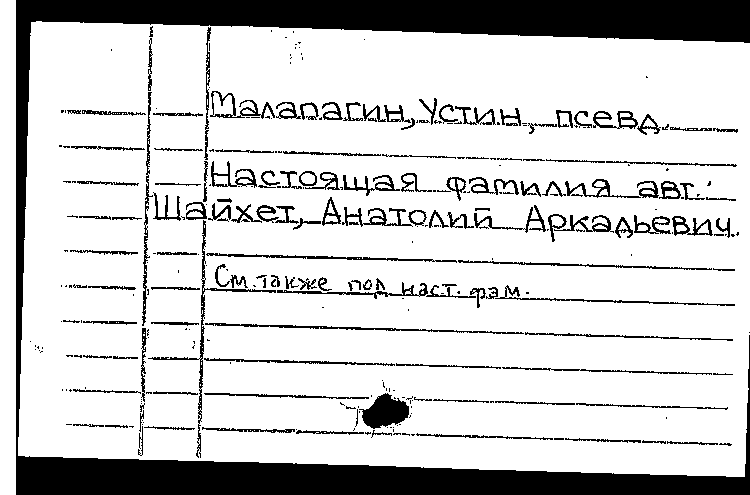 Малапагин, Устин, псевд.
Настоящая фамилия авт.:
Шайхет, Анатолий Аркадьевич.
См. также под наст. фам.